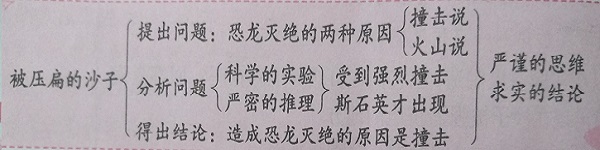 被压扁的沙子
提出问题：恐龙灭绝的两种原因
撞击说
火山说
分析问题
科学的实验
严密的推理
受到强烈撞击
斯石英才出现
得出结论：造成恐龙灭绝的原因是撞击
严谨的思维
求实的结论